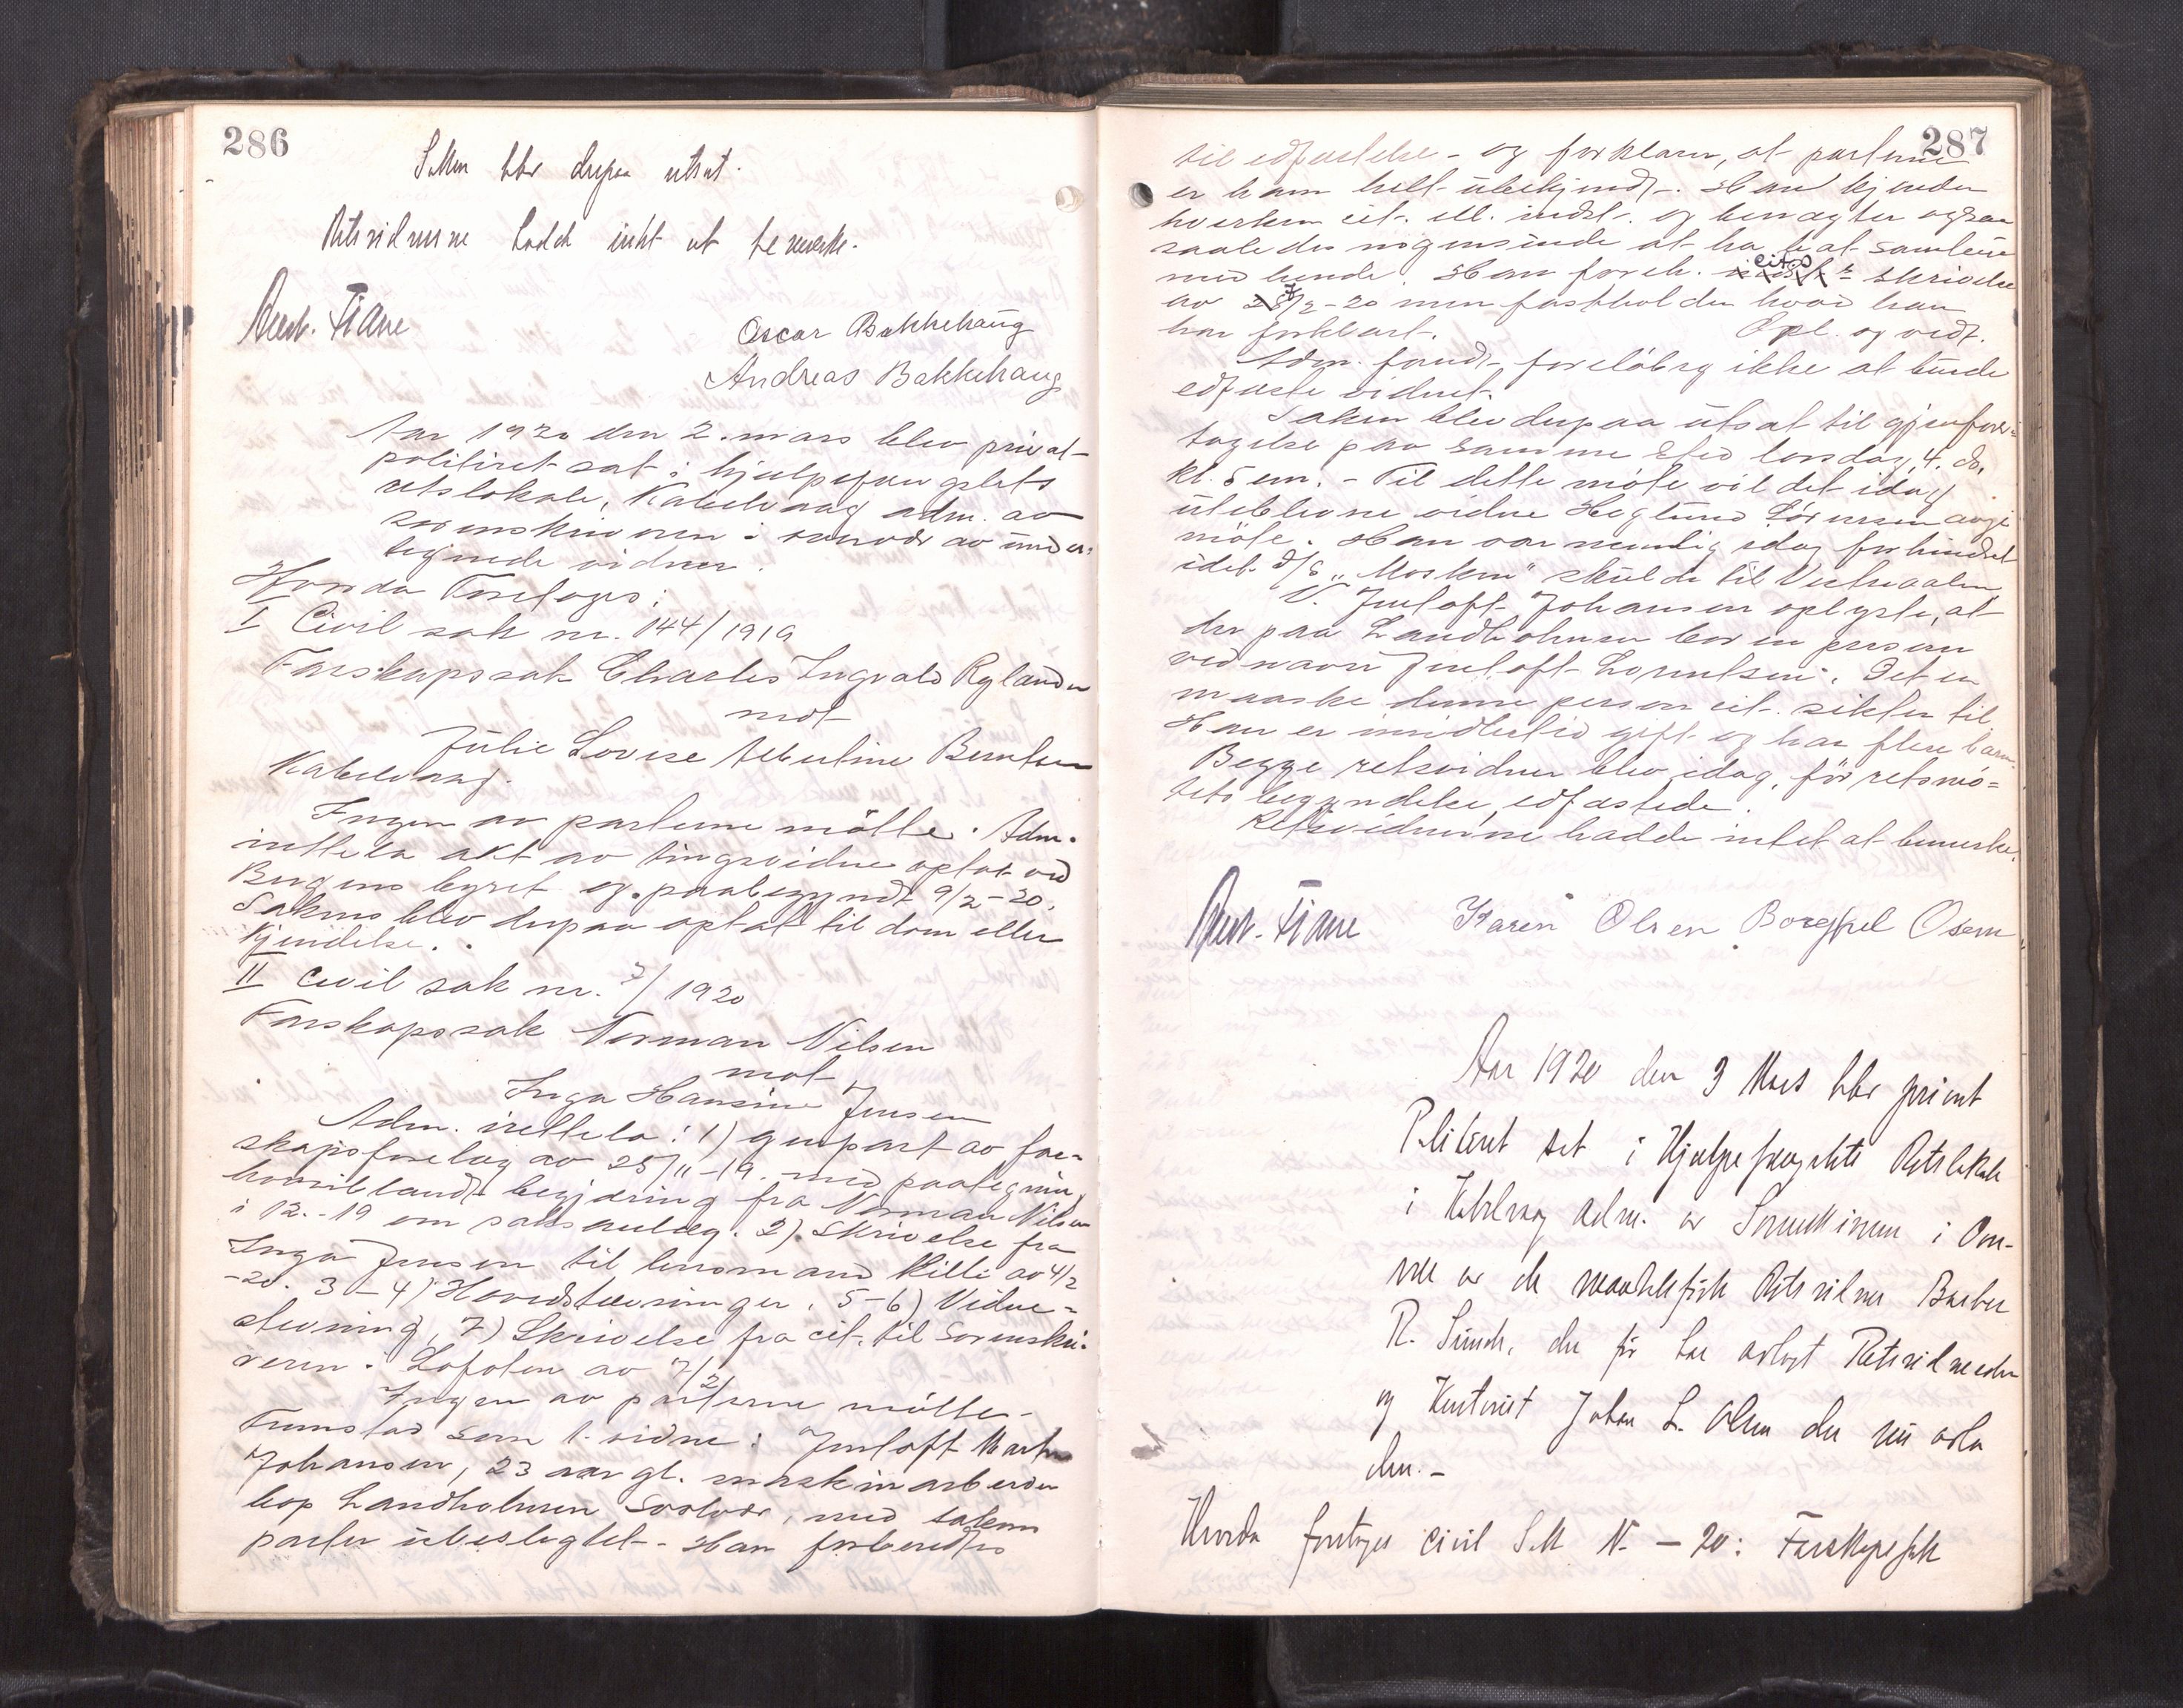 286
Saken blev derpaa utsat.
Retsvidnerne hadde intet at bemerke.
Fiane
Oscar Bakkehaug
Andreas Bakkehaug
Aar 1920 den 2. mars blev privat-
politiret sat i hjælpefængslets
retslokale, Kabelvaag adm. av
sorenskriveren i overvær av under-
tegnede vidner.
Hvorda Foretoges:
I Civil sak nr. 144/1919
Farskapssak Charles Ingvald Rylander
mot
Julie Lovise Albertine Berntsen
Kabelvaag.
Ingen av parterne møtte. Adm.
irettela akt av tingsvidne optat ved
Bergens byret og paabegyndt 9/2-20.
Sakens blev derpaa optat til dom eller
kjendelse.
II Civil sak nr. 7/1920
Farskapssak Norman Nilsen
mot
Inga Hansine Jensen
Adm. irettela: 1) genpart av far-
skapsforelæg av 25/11-19. med paategning
hvoriblandt begjæring fra Norman Nilsen
i 12.-19 om saksanlæg. 2) Skrivelse fra
Inga Jensen til lensmand Killi av 4/2
-20. 3-4) Hovedstevninger. 5-6) Vidne-
stevning, 7) Skrivelse fra cit. til Sorenskri-
veren i Lofoten av 7/2
Ingen av parterne møtte.
Fremstod som 1. vidne: Jentoft Martin
Johansen, 23 aar gl. maskinarbeider
bop Landholmen Svolvær, med sakens
parter ubeslegtet. Han forberedtes
287
til edfæstelse - og forklarer, at parterne
er ham helt ubekjendt. Han kjender
hverken cit. ell. indst. og benegter ogsaa
saaledes nogensinde at ha hat samleie
med hende. Han foreh. cit.s skrivelse
av 7/2-20 men fastholder hvad han
har forklart. Opl. og vedt.
Adm. fandt foreløbig ikke at burde
edfæste vidnet.
Saken blev derpaa utsat til gjenfore-
tagelse paa samme sted torsdag, 4. ds,
kl. 5 em. - Til dette møte vil det idag
uteblevne vidne Høglund Sørensen avgi
møte. Han var nemlig idag forhindret
idet D/S "Mosken" skulde til Vesteraalen
V. Jentoft Johansen oplyste, at
der paa Landholmen bor en person
ved navn Jentoft Lorentsen. Det er
maaske denne person cit. sikter til.
Han er imidlertid gift og har flere barn.
Begge retsvidner blev idag, før retsmø-
tets begyndelse, edfæstede.
Retsvidnerne hadde intet at bemerke.
Fiane Karen Olsen Borghel Osem
Aar 1920 den 3 Mars blev privat
Politiret sat i Hjælpefængslets Retslokale
i Kabelvaag adm. av Sorenskriveren i Over-
vær av de Retsvidner Barber
R. Sund, der før har avlagt Retsvidneeden
og Kontorist Johan L. Olsen der nu avla
den.-
Hvorda foretoges civil Sak N. - 20: Farskapssak